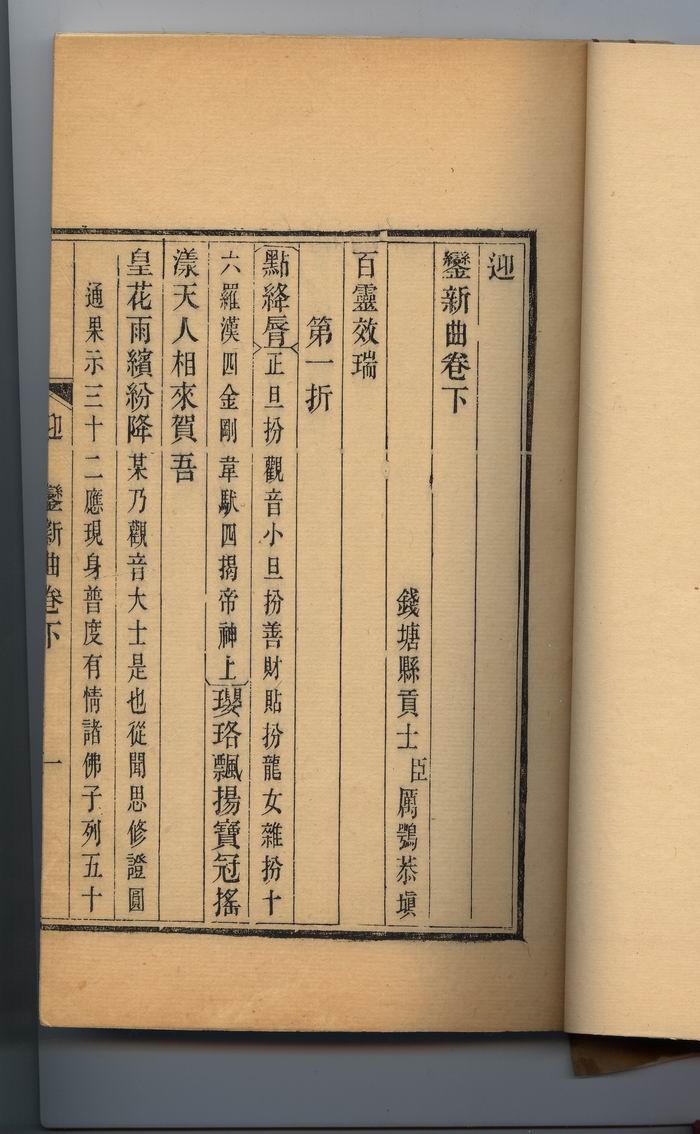 迎
鑾新曲卷下
錢塘縣貢士臣厲鶚恭塡
百靈效瑞
第一折
點絳脣正旦扮觀音小旦扮善財貼扮龍女雜扮十
六羅漢四金剛韋馱四揭帝神上瓔珞飄揚寶冠搖
漾天人相來賀吾
皇花雨繽紛降某乃觀音大士是也從聞思修證圓
通果示三十二應現身普度有情諸佛子列五十
迎 鑾新曲卷下 一